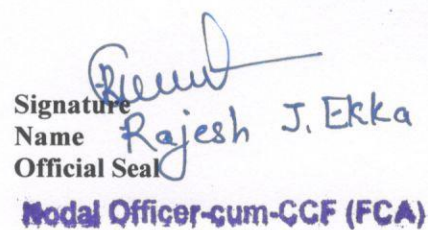 Signature
Name Rajesh J. Ekka
Official Seal
Nodal Officer-cum-CCF (FCA)